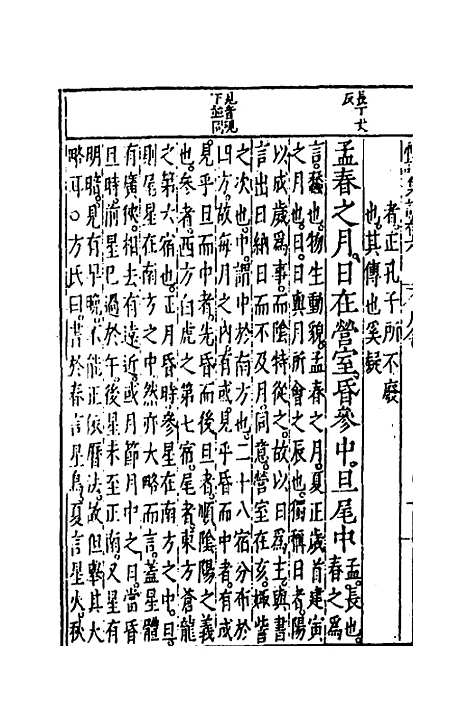 長丁丈反
見音現下並同
者正孔子所不廢
也其傳也奚疑
孟春之月日在營室昏參中旦尾中 孟長也春之爲
言蠢也物生動貌孟春之月夏正歲首建寅
之月也日日與月所會之辰也獨稱日者陽
以成歲爲事而陰特從之故以日爲主與書
言出日納日而不及月同意營室在亥娵訾
之次也中謂中於南方也二十八宿分布於
四方故每月之內有或見乎昏而中者有或
見乎旦而中者先昏而後旦者順陰陽之義
也參者西方白虎之第七宿尾者東方蒼龍
之第六宿也正月昏時參星在南方之中旦
則尾星在南方之中然亦大略而言蓋星體
有廣狹相去有遠近或月節月中之日當昏
旦時前星已過於午後星未至正南又星有
明暗見有早晚不能正依曆法故但舉其大
略耳○方氏曰書於春言星鳥夏言星火秋